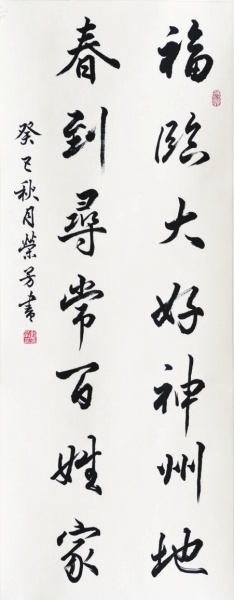 福臨大好神州地
春到尋常百姓家
癸巳秋月榮芳書